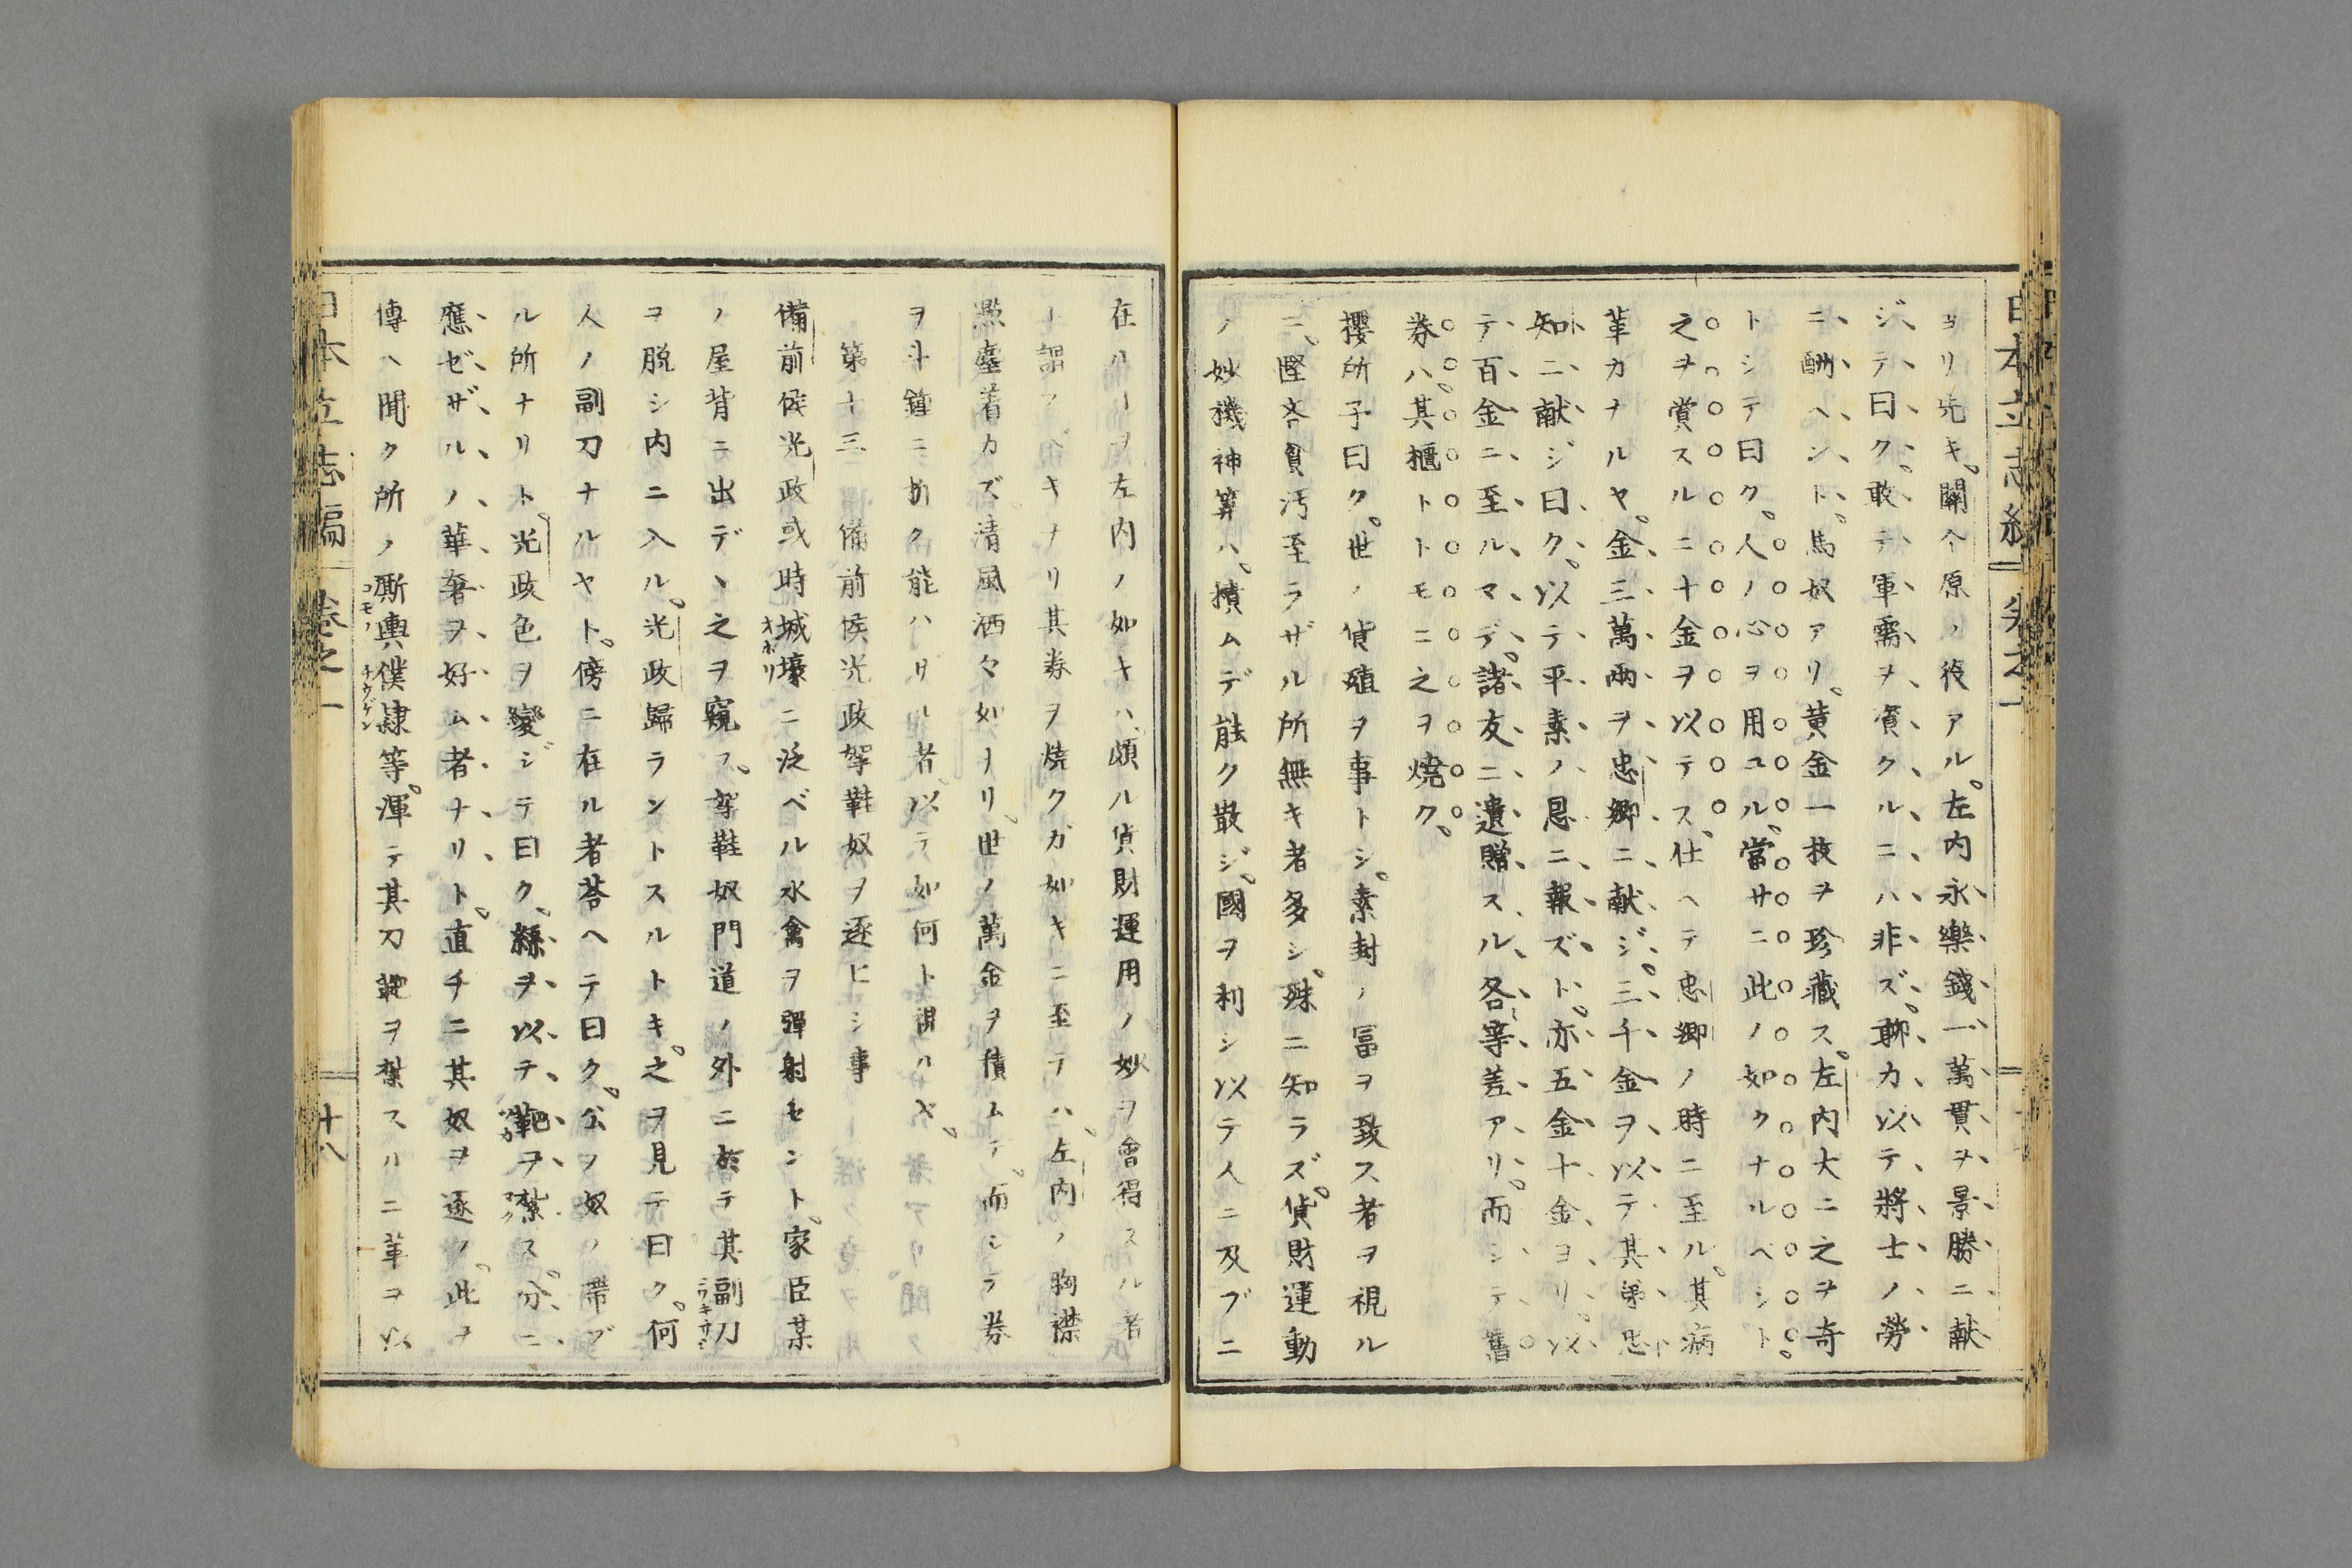 日本立志編 卷之一
ヨリ先キ。關个原ノ役アル。左内永樂錢一萬貫ヲ景勝ニ献
ジテ曰ク。敢テ軍需ヲ資クルニハ非ズ。聊カ以テ將士ノ勞
ニ酬ヘント。馬奴アリ。黄金一枚ヲ珍藏ス。左内大ニ之ヲ奇
トシテ曰ク。人ノ心ヲ用ユル。當サニ此ノ如クナルベシト。
之ヲ賞スルニ十金ヲ以テス。仕ヘテ忠郷ノ時ニ至ル。其病
革カナルヤ。金三萬兩ヲ忠郷ニ献ジ。三千金ヲ以テ其弟忠
知ニ献ジ曰ク。以テ平素ノ恩ニ報ズト。亦五金十金ヨリ。以
テ百金ニ至ルマデ。諸友ニ遺贈スル。各等差アリ。而シテ舊
券ハ。其櫃トトモニ之ヲ燒ク。
櫻所子曰ク。世ノ貨殖ヲ事トシ。素封ノ冨ヲ致ス者ヲ視ル
ニ。慳吝貪汚至ラザル所無キ者多シ。殊ニ知ラズ。貨財運動
ノ妙機神算ハ。積ムデ能ク散ジ。國ヲ利シ以テ人ニ及ブニ
在ルヿヲ左内ノ如キハ。頗ル貨財運用ノ妙ヲ會得スル者
ト謂フベキナリ其券ヲ燒クガ如キニ至テハ。左内ノ胸襟
㸃塵着カズ。清風洒々如タリ。世ノ萬金ヲ積ムデ。而シテ券
ヲ斗鐘ニ折ク能ハザル者。以テ如何ト視ルゾ。
第十三 備前侯光政拏鞋奴ヲ逐ヒシ事
備前侯光政或時城壕ニ泛ベル水禽ヲ彈射セント。家臣某
オホリ
ノ屋背ニ出デヽ之ヲ窺フ。拏鞋奴門道ノ外ニ於テ其副刀
ヲ脱シ内ニ入ル。光政歸ラントスルトキ。之ヲ見テ曰ク。何
人ノ副刀ナルヤト。傍ニ在ル者荅ヘテ曰ク。公ヲ奴ノ帶ブ
ル所ナリト。光政色ヲ變ジテ曰ク。綟ヲ以テ靶ヲ紮ス。分ニ
應ゼザルノ華奢ヲ好ム者ナリト。直チニ其奴ヲ逐フ。此ヲ
傳ヘ聞ク所ノ厮輿僕隷等。渾テ其刀靶ヲ紮スルニ革ヲ以
コモノ チウゲン
日本立志編 卷之一 十八